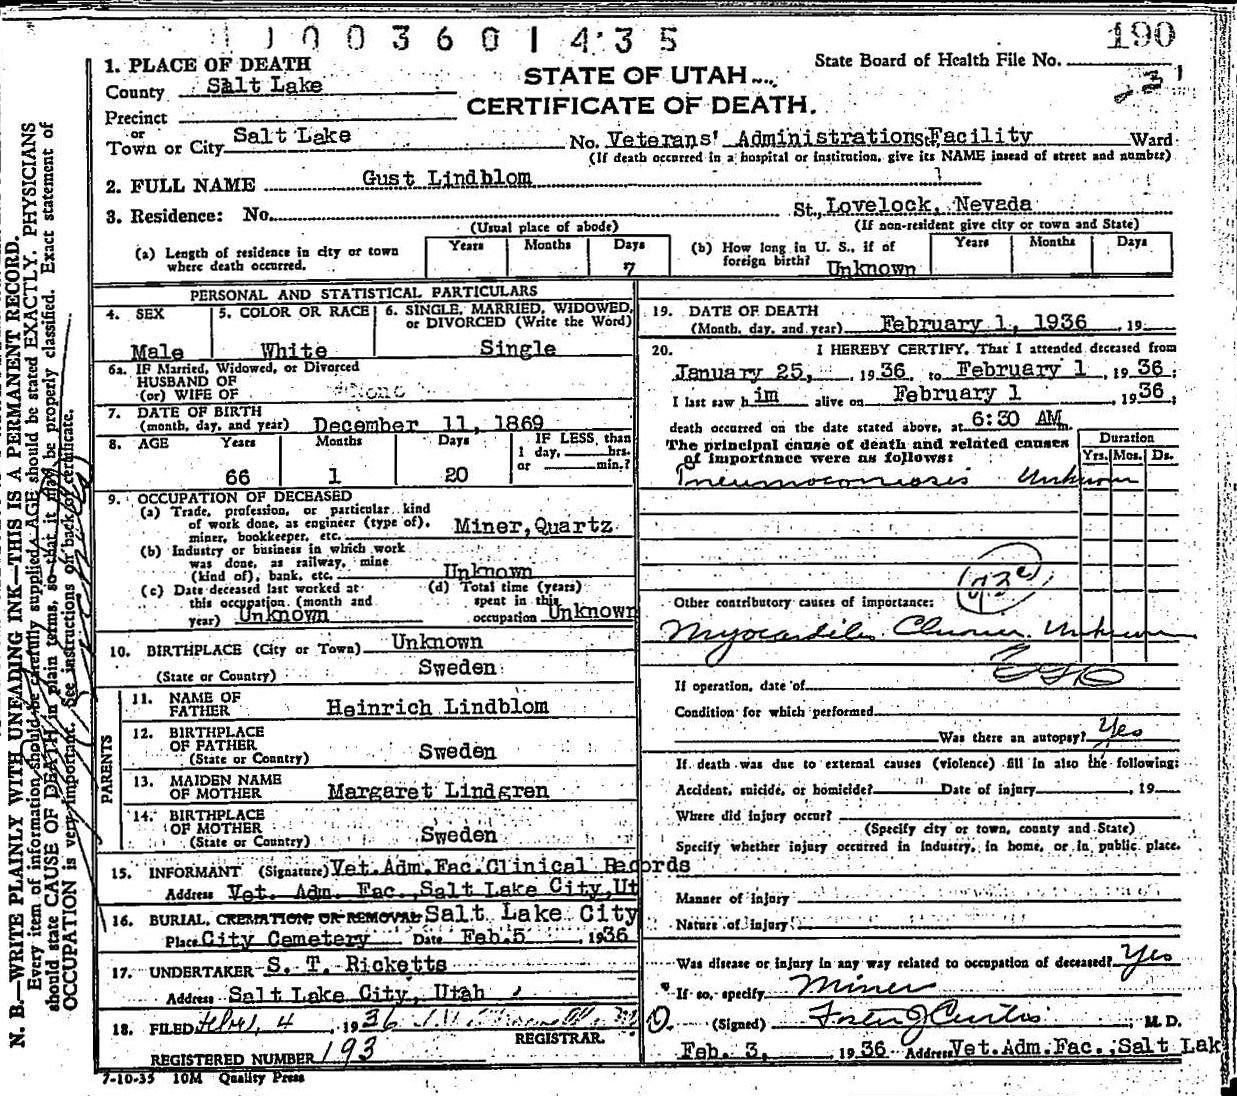 1003601435
190
1. PLACE OF DEATH
County Salt Lake
STATE OF UTAH
CERTIFICATE OF DEATH.
State Board of Health File No.
Precinct
or
Town or City Salt Lake No. Veterans' Administration St. Facility Ward
(If death occurred in a hospital or institution, give its NAME instead of street and number)
2. FULL NAME Gust Lindblom
3. Residence: No. St., Lovelock, Nevada
(Usual place of abode) (If non-resident give city or town and State)
(a) Length of residence in city or town where death occurred. Years Months Days 7
(b) How long in U. S., if of foreign birth? Unknown Years Months Days
PERSONAL AND STATISTICAL PARTICULARS
4. SEX Male
5. COLOR OR RACE White
6. SINGLE, MARRIED, WIDOWED, or DIVORCED (Write the Word) Single
6a. IF Married, Widowed, or Divorced
HUSBAND OF
(or) WIFE OF None
7. DATE OF BIRTH
(month, day, and year) December 11, 1869
8. AGE Years 66 Months 1 Days 20
IF LESS, than
1 day, hrs.
or min.?
9. OCCUPATION OF DECEASED
(a) Trade, profession, or particular kind
of work done, as engineer (type of),
miner, bookkeeper, etc. Miner, Quartz
(b) Industry or business in which work
was done, as railway, mine
(kind of), bank, etc. Unknown
(c) Date deceased last worked at
this occupation (month and
year) Unknown
(d) Total time (years)
spent in this
occupation Unknown
10. BIRTHPLACE (City or Town) Unknown
(State or Country) Sweden
PARENTS
11. NAME OF FATHER Heinrich Lindblom
12. BIRTHPLACE OF FATHER
(State or Country) Sweden
13. MAIDEN NAME OF MOTHER Margaret Lindgren
14. BIRTHPLACE OF MOTHER
(State or Country) Sweden
15. INFORMANT (Signature) Vet.Adm.Fac.Clinical Records
Address Vet. Adm. Fac., Salt Lake City, Ut
16. BURIAL, CREMATION, OR REMOVAL Salt Lake City
Place City Cemetery Date Feb.5, 1936
17. UNDERTAKER S. T. Ricketts
Address Salt Lake City, Utah
18. FILED 4, 1936
REGISTRAR.
REGISTERED NUMBER 193
7-10-35 10M Quality Press
19. DATE OF DEATH
(Month, day, and year) February 1, 1936, 19
20. I HEREBY CERTIFY, That I attended deceased from
January 25, 1936, to February 1, 1936;
I last saw him alive on February 1, 1936;
death occurred on the date stated above, at 6:30 AM.
The principal cause of death and related causes
of importance were as follows:
Duration
Yrs. Mos. Ds.
Pneumoconiosis Unknown
Other contributory causes of importance:
Myocarditis Chronic Unknown
If operation, date of
Condition for which performed
Was there an autopsy? Yes
If death was due to external causes (violence) fill in also the following:
Accident, suicide, or homicide? Date of injury, 19
Where did injury occur?
(Specify city or town, county and State)
Specify whether injury occurred in industry, in home, or in public place.
Manner of injury
Nature of injury
Was disease or injury in any way related to occupation of deceased? Yes
If so, specify Miner
(Signed) Curtis, M. D.
Feb. 3, 1936 Address Vet.Adm.Fac., Salt Lak
N. B.—WRITE PLAINLY WITH UNFADING INK—THIS IS A PERMANENT RECORD.
Every item of information should be carefully supplied. AGE should be stated EXACTLY. PHYSICIANS
should state CAUSE OF DEATH in plain terms, so that it may be properly classified. Exact statement of
OCCUPATION is very important. See instructions on back of certificate.